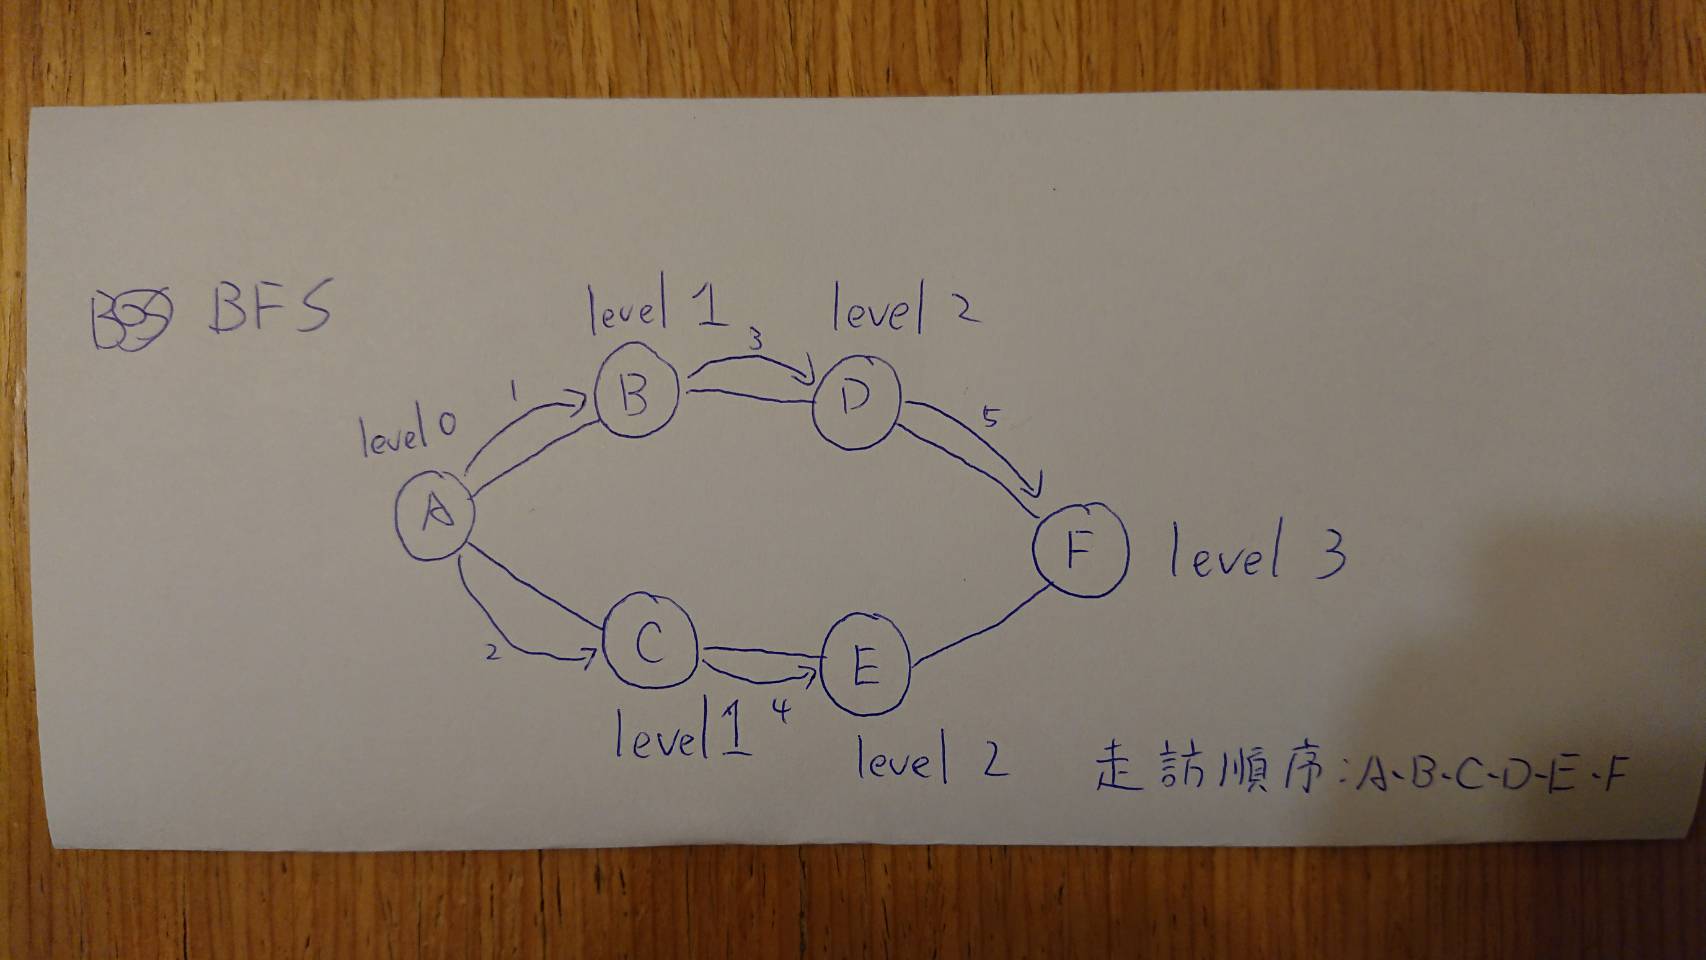 BFS
level 1
level 2
3
1
B
D
level 0
5
A
F
level 3
C
E
2
4
level 1
level 2
走訪順序:A-B-C-D-E-F